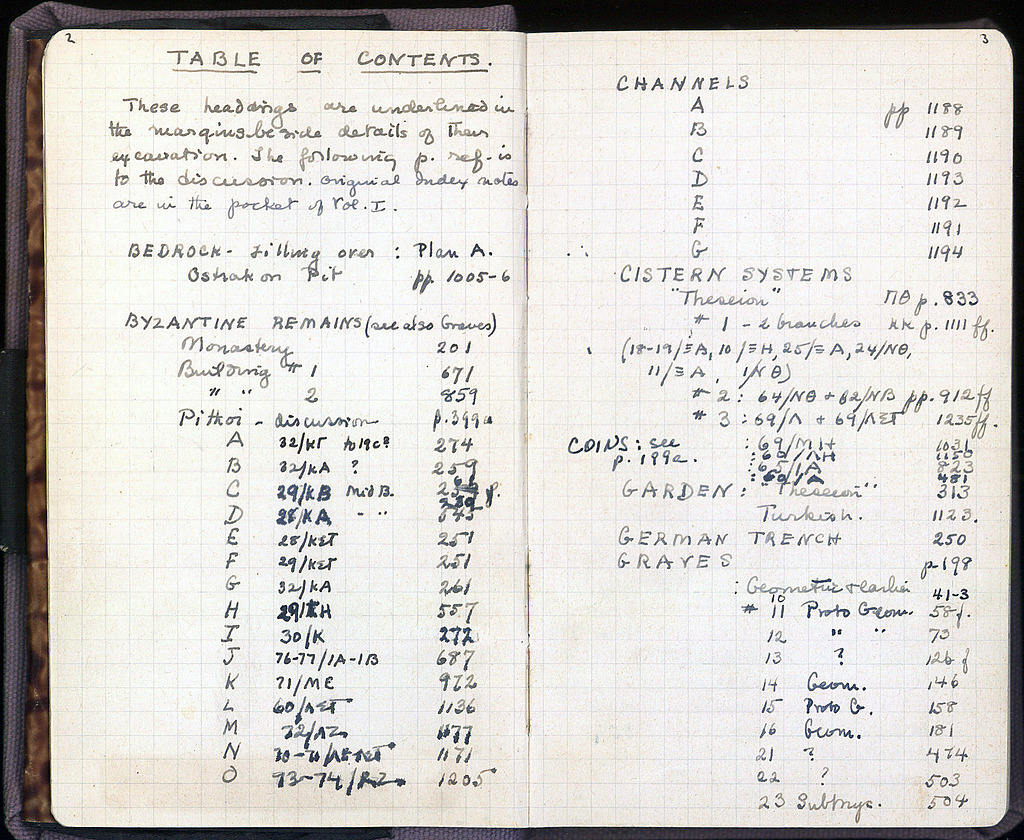 2
TABLE OF CONTENTS.
These headings are underlined in
the margins beside details of their
excavation. The following p. ref. is
to the discussion. Original Index notes
are in the pocket of Vol. I.
BEDROCK - filling over : Plan A.
Ostrakon Pit pp. 1005-6
BYZANTINE REMAINS (see also Graves)
Monastery 201
Building #1 671
" " 2 859
Pithoi - discussion p. 399a
A 32/ΚΓ to 19c? 274
B 32/ΚΑ ? 259
C 29/ΚΒ Mid B.
D 28/ΚΑ " "
E 28/ΚΣΤ 251
F 29/ΚΣΤ 251
G 32/ΚΑ 261
H 557
I 30/Κ 272
J 76-77/ΙΑ-ΙΒ 687
K 71/ΜΕ 972
L 60/ΛΣΤ 1136
M 32/ΛΖ 1177
N 1171
O 73-74/ 1205
3
CHANNELS
A pp 1188
B 1189
C 1190
D 1193
E 1192
F 1191
G 1194
CISTERN SYSTEMS
"Theseion" ΠΘ p. 833
# 1 - 2 branches ΚΚ p. 1111 ff.
(18-19/ΞΑ, 10/ΞΗ, 25/ΞΑ, 24/ΝΘ,
11/ΞΑ, 1/ΝΘ)
# 2 : 64/ΝΘ + 62/ΝΒ pp. 912 ff
# 3 : 69/Λ + 69/ΛΣΤ 1235 ff.
COINS : see : 69/ΜΗ 1031
p. 199a. : 60/ΛΗ 1150
: 65/ΙΑ 823
: 60/Α 481
GARDEN : "Theseion" 313
Turkish. 1123.
GERMAN TRENCH 250
GRAVES p. 198
: Geometric & earlier
10 41-3
# 11 Proto Geom. 58 f.
12 " " 73
13 ? 126 f
14 Geom. 146
15 Proto G. 158
16 Geom. 181
21 ? 474
22 ? 503
23 Submyc. 504